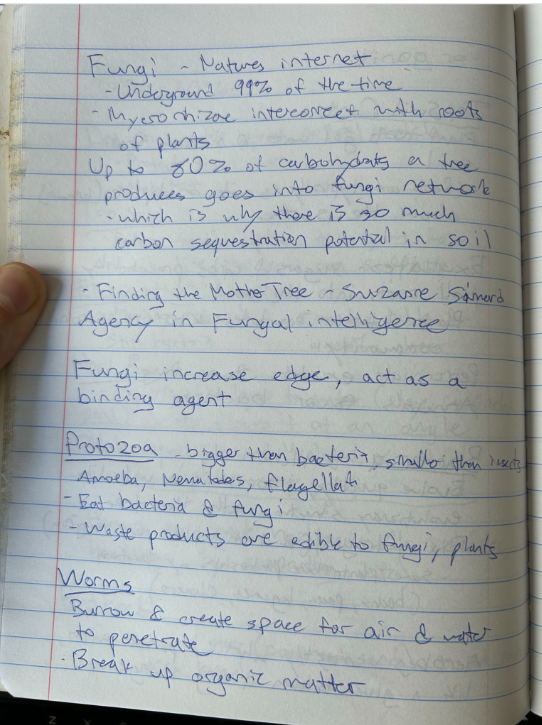 Fungi - Natures internet
- Underground 99% of the time
- Mycorrhizae interconnect with roots
of plants
Up to 80% of carbohydrats a tree
produces goes into fungi network
- which is why there is so much
carbon sequestration potential in soil
- Finding the Mother Tree - Suzanne Simard
Agency in Fungal intelligence
Fungi increase edge, act as a
binding agent
Protozoa - bigger than bacteria, smaller than insects
Amoeba, Nematodes, flagellate
- Eat bacteria & fungi
- Waste products are edible to fungi, plants
Worms
Burrow & create space for air & water
to penetrate
- Break up organic matter